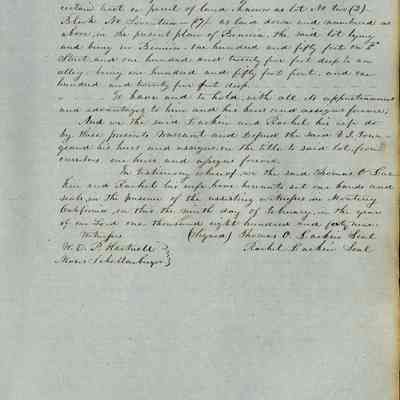 certain tract or parcel of land known as lot No two (2)
Block No Seventeen (17), as laid down and numbered as
above, in the present plan of Benicia, the said lot lying
and being in Benicia - one hundred and fifty feet on
Street and one hundred and twenty five feet deep to an
alley - being one hundred and fifty feet front, and one
hundred and twenty five feet deep.
To have and to hold, with all its appurtenances
and advantages to him and his heirs and assigns forever;
And we the said Larkin and Rachel his wife do
by these presents warrant and defend the said
his heirs and assigns, in the title to said lot, from
ourselves our heirs and assigns forever.
In testimony whereof, we the said Thomas O. Lar-
kin and Rachel his wife have hereunto set our hands and
seals, in the presence of the witnesses in Monterey
California, on this the ninth day of February, in the year
of our Lord one thousand eight hundred and forty nine.
Witness (Signed) Thomas O. Larkin Seal
W. E. P. Hartnell Rachel Larkin Seal
Moris Schollenberger